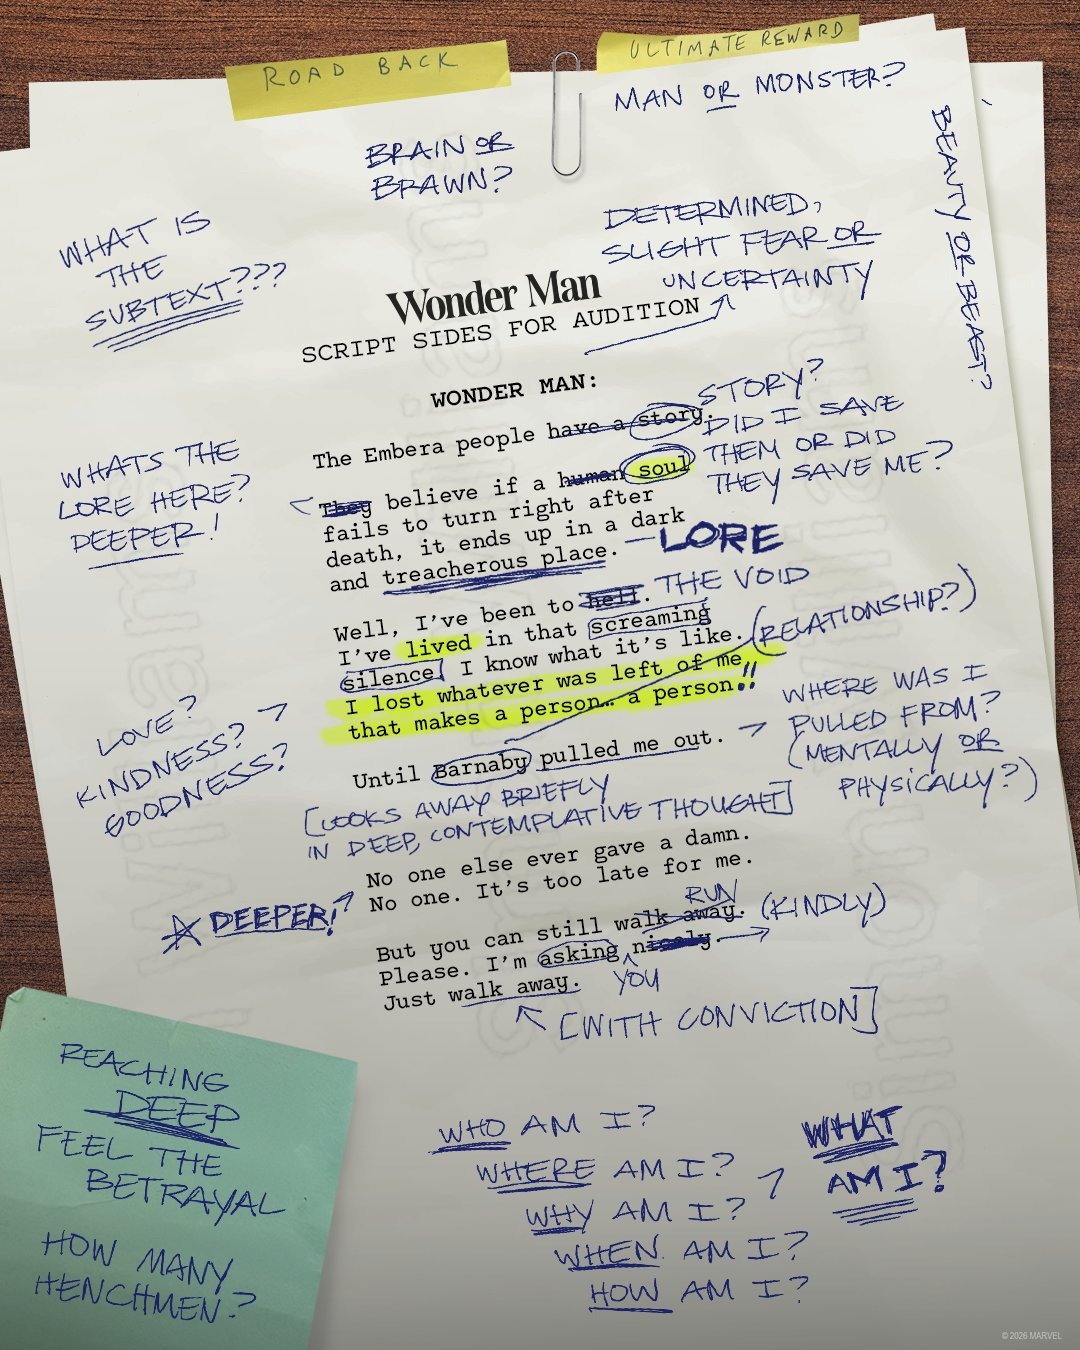 ROAD BACK
ULTIMATE REWARD
MAN OR MONSTER?
BEAUTY OR BEAST?
BRAIN OR
BRAWN?
WHAT IS
THE
SUBTEXT???
DETERMINED,
SLIGHT FEAR OR
UNCERTAINTY
Wonder Man
SCRIPT SIDES FOR AUDITION
WONDER MAN:
The Embera people have a story.
STORY?
DID I SAVE
THEM OR DID
THEY SAVE ME?
WHATS THE
LORE HERE?
DEEPER!
They believe if a human soul
fails to turn right after
death, it ends up in a dark
and treacherous place.
LORE
Well, I've been to hell.
THE VOID
I've lived in that screaming
silence. I know what it's like.
(RELATIONSHIP?)
I lost whatever was left of me
that makes a person… a person!!
LOVE?
KINDNESS?
GOODNESS?
Until Barnaby pulled me out.
WHERE WAS I
PULLED FROM?
(MENTALLY OR
PHYSICALLY?)
[LOOKS AWAY BRIEFLY
IN DEEP, CONTEMPLATIVE THOUGHT]
No one else ever gave a damn.
No one. It's too late for me.
DEEPER!
RUN
But you can still walk away.
(KINDLY)
Please. I'm asking nicely.
YOU
Just walk away.
[WITH CONVICTION]
REACHING
DEEP
FEEL THE
BETRAYAL
HOW MANY
HENCHMEN?
WHO AM I?
WHERE AM I?
WHY AM I?
WHEN AM I?
HOW AM I?
WHAT
AM I?
© 2026 MARVEL